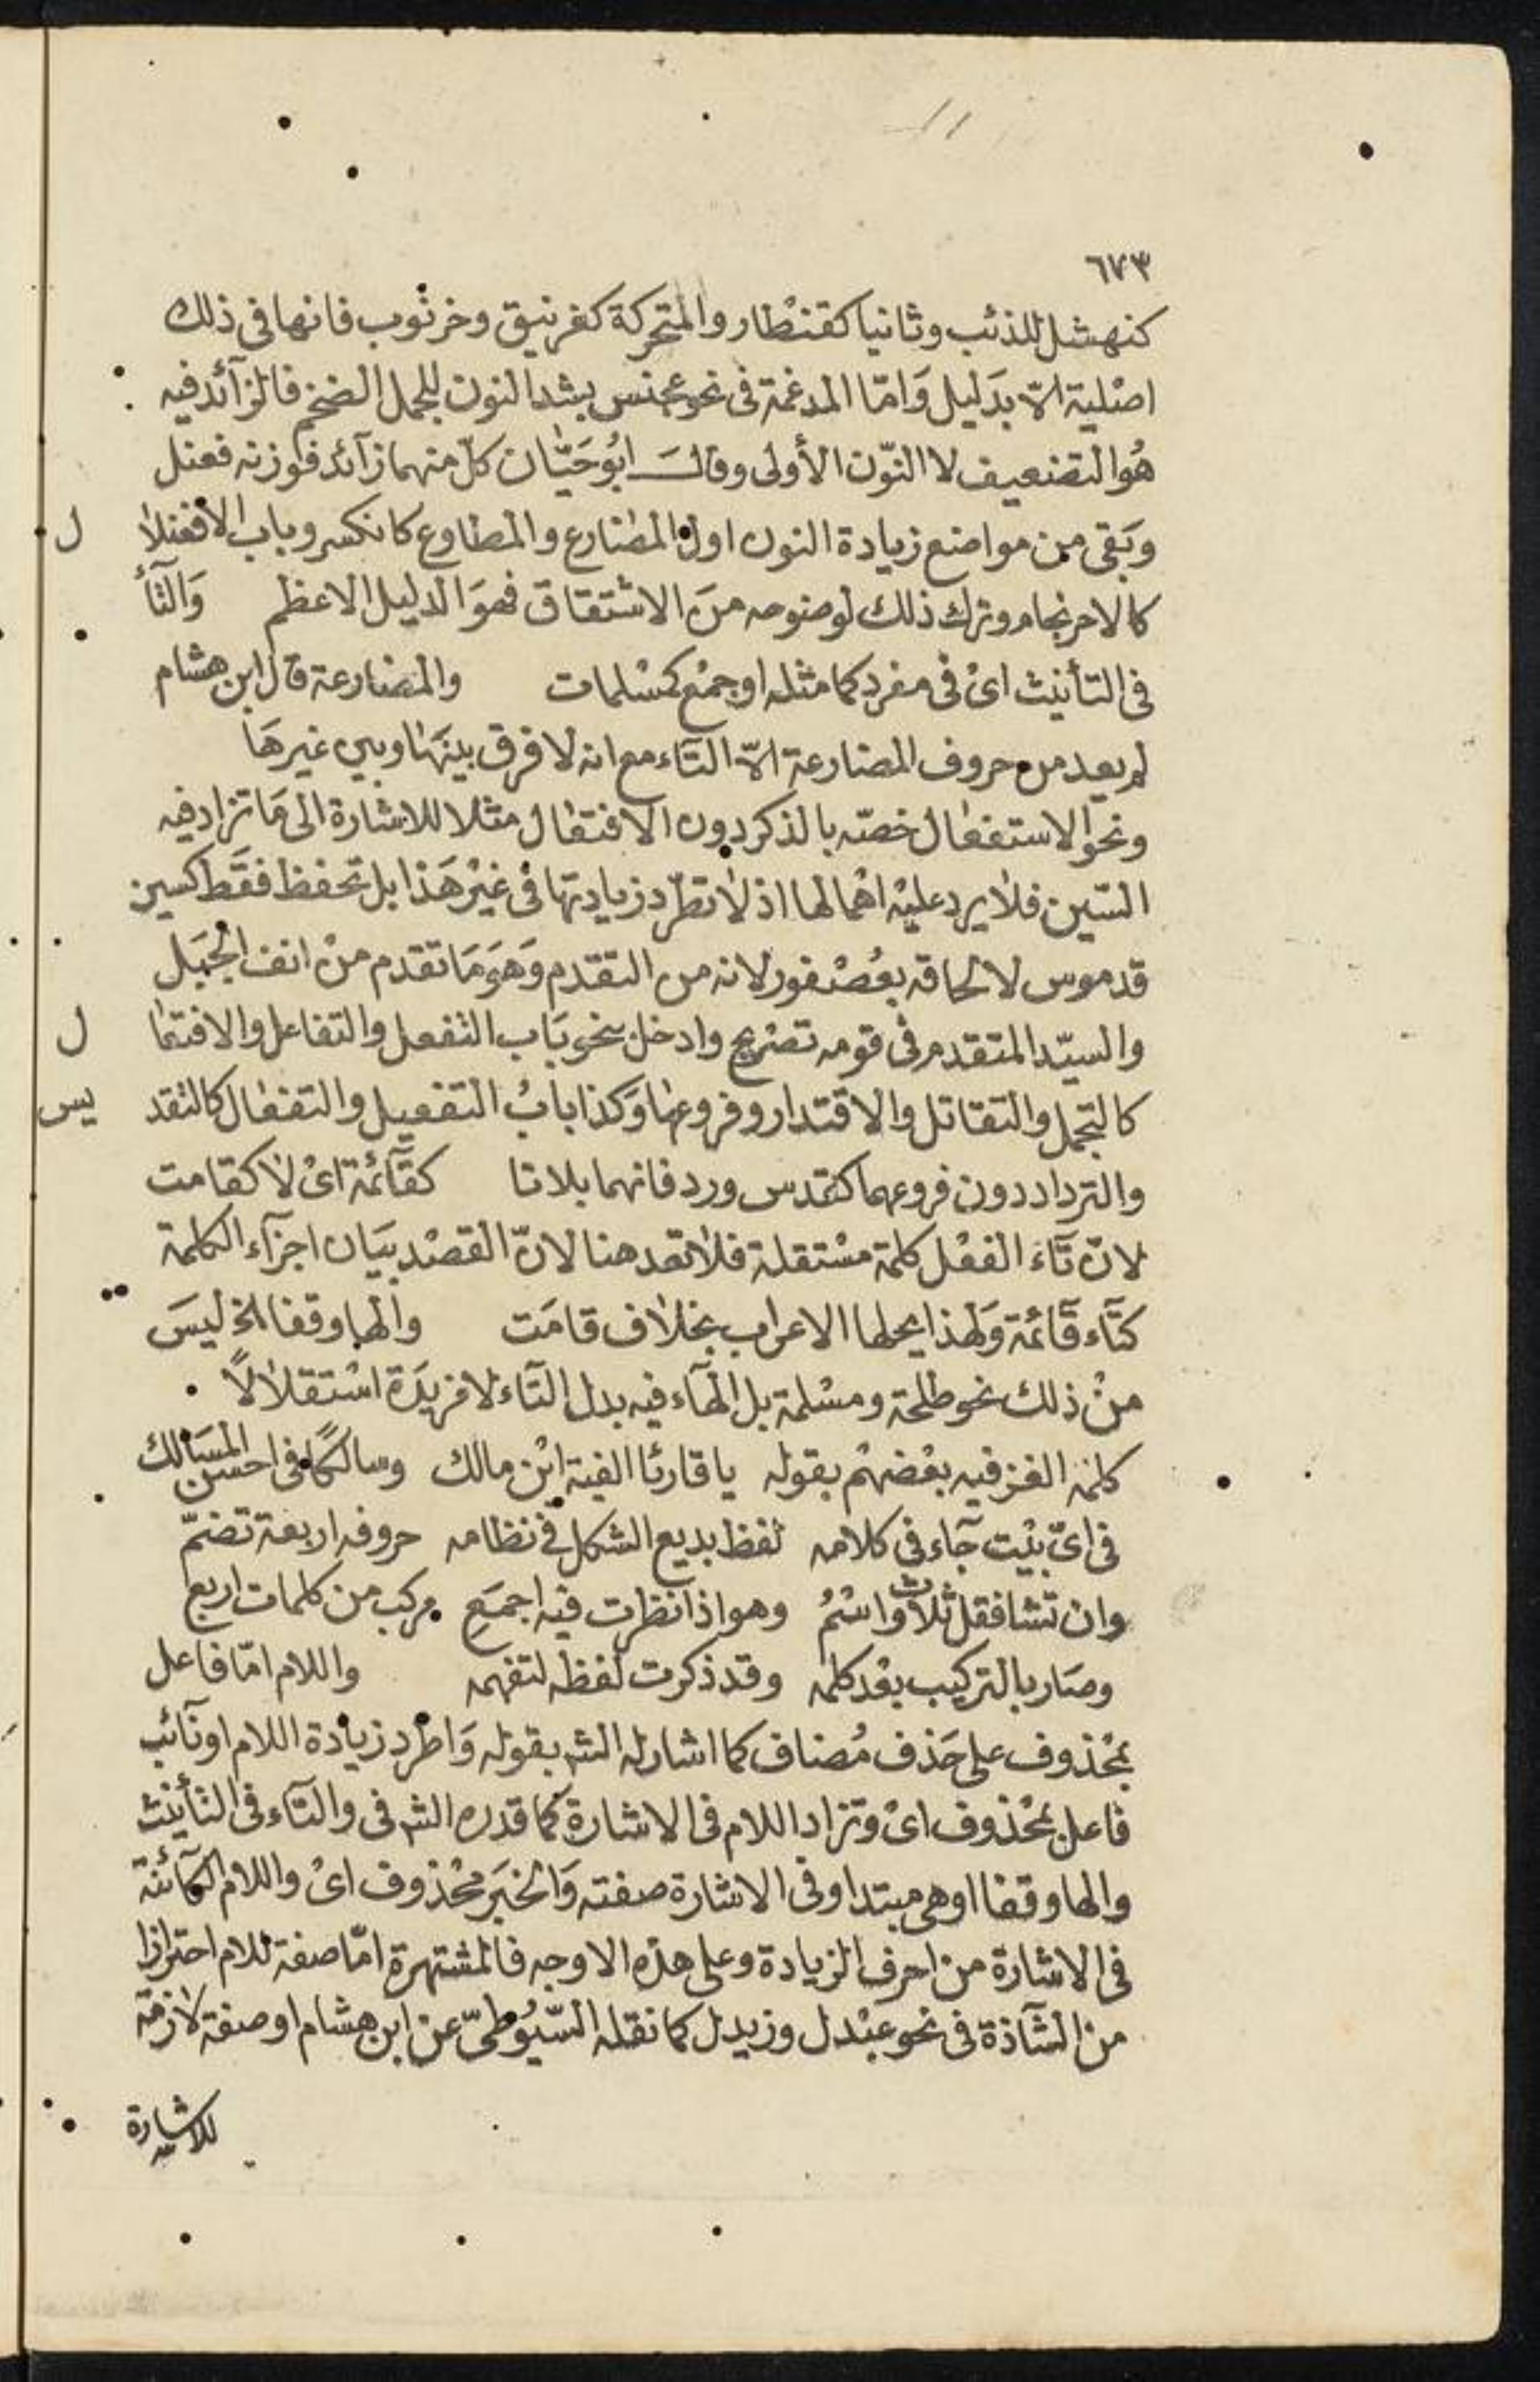 ٦٧٣
كنهشل للذئب وثانيا كقنطار والمتحركة كغرنيق وخرنوب فانها فى ذلك
اصلية الاّ بدليل وَامّا المدغمة فى نحو عجنس بشد النون للجمل الضخم فالزآئد فيه
هُوَ التضعيف لا النّون الأولى وقالَ ابُو حَيّان كلّ منهما زآئد فوزنه فعنل
وبَقى من مواضع زيادة النون اول المضارع والمطاوع كانكسر وباب الافعنلا ل
كالاحرنجام وترك ذلك لوضوحه منَ الاشتقاق فهوَ الدليل الاعظم وَالتّآء
فى التأنيث اىْ فى مفرد كما مثله او جمْع كمسْلمات والمضارعة قال ابن هشام
لم يعد من حروف المضارعة الاّ التآء مع انه لا فرق بينهَا وبين غيرهَا
ونحو الاستفعال خصّه بالذكر دون الافتعال مثلا للاشارة الى مَا تزاد فيه
السّين فلا يرد عليْه اهْمالها اذ لا تطّرد زيادتها فى غيْر هَذا بل تحفظ فقَط كسين
قدموس لالحاقه بعُصْفور لانه من التقدم وَهوَ مَا تقدم منْ انف الجبَل
والسيّد المتقدم فى قومه تصْريح وادخل بنحو بَاب التفعل والتفاعل والافتعا ل
كالتجمل والتقاتل والاقتدار وفروعها وَكذا بابُ التفعيل والتفعال كالتقد يس
والترداد دون فروعهما كقدس ورد فانهما بلا تا كقآئمة اىْ لا كقامت
لانّ تآء الفعْل كلمة مسْتقلة فلا تعد هنا لانّ القصْد بيَان اجزآء الكلمة
كتآء قآئمة وَلهَذا يحلها الاعراب بخلاف قامَت والها وقفا الخ ليسَ
منْ ذلك نحو طلحة ومسْلمة بل الهآء فيه بدل التآء لا مزيدَة اسْتقلالاً
كلمه الغز فيه بعْضهمْ بقوله يا قارئا الفية ابْن مالك وسالكًا فى احسن المسَالك
فى اىّ بيْت جآء فى كلامه لفظ بديع الشكل فى نظامه حروفه اربعة تضمّ
وان تشا فقل ثلاث واسْمُ وهو اذا نظرت فيْه اجمَع مركب من كلمات اربع
وصَار بالتركيب بعْد كلمه وقد ذكرت لفظه لتفهمه واللام امّا فاعل
بمحْذوف على حَذف مُضاف كما اشار له الشر بقوله وَاطرد زيادة اللام او نآئب
فاعل بمحْذوف اىْ وتزاد اللام فى الاشارة كما قدره الشر فى والتآء فى التأنيث
والها وقفا او هى مبتدا وفى الاشارة صفته وَالخبَر محْذوف اىْ واللام الكآئنة
فى الاشارة من احرف الزيادة وعلى هذه الاوجه فالمشتهرة امّا صفة للام احترازا
من الشآذة فى نحو عبْدل وزيدل كما نقله السّيُوطىّ عن ابن هشام او صفة لازمة
للاشارة